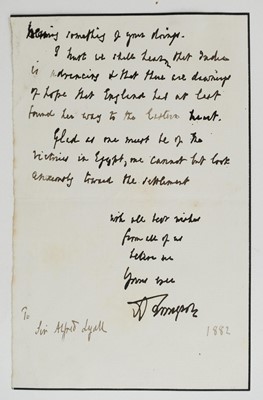 hearing something of your doings.
I trust we shall hear that India
is advancing & that there are dawnings
of hope that England has at last
found her way to the Eastern heart.
Glad as one must be of the
victories in Egypt, one cannot but look
anxiously toward the settlement
with all best wishes
from all of us
believe me
Yours ever
ATennyson
To
Sir Alfred Lyall
1882